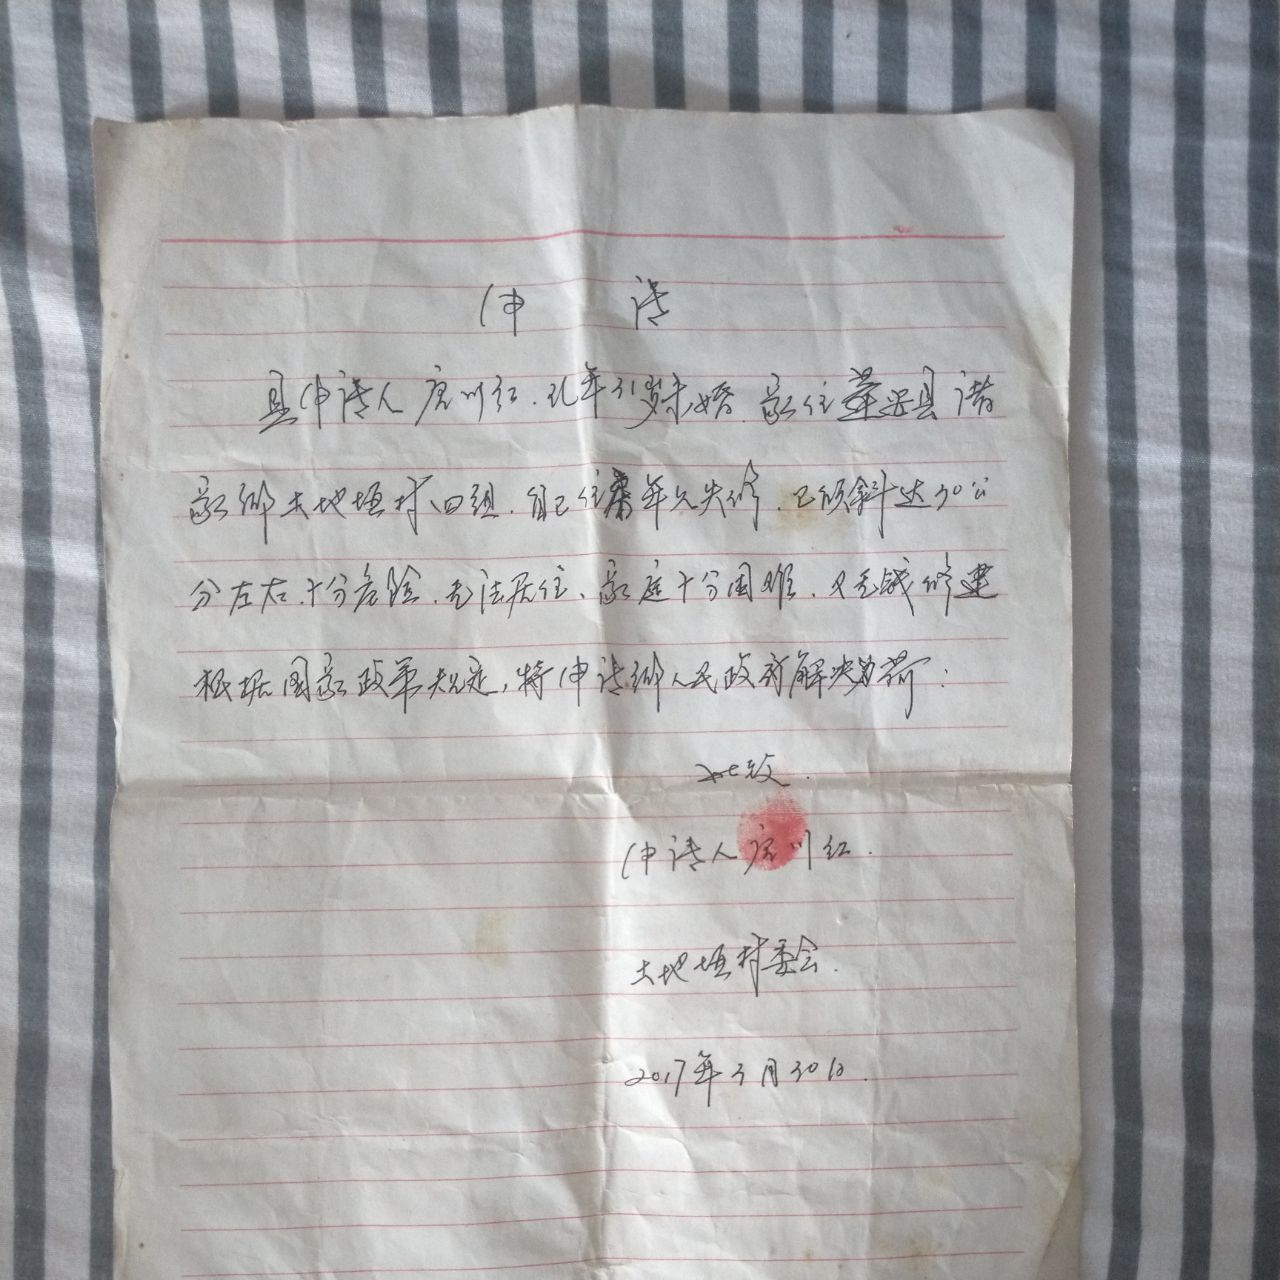 申 请
具申请人唐川红.现年31岁未婚.家住蓬安县诸
家乡土地垭村四组.自己住房年久失修.已倾斜达30公
分左右.十分危险.无法居住、家庭十分困难.又无钱修建
根据国家政策规定,特申请乡人民政府解决为荷:
此致.
申请人唐川红.
土地垭村委会.
2017年3月30日.